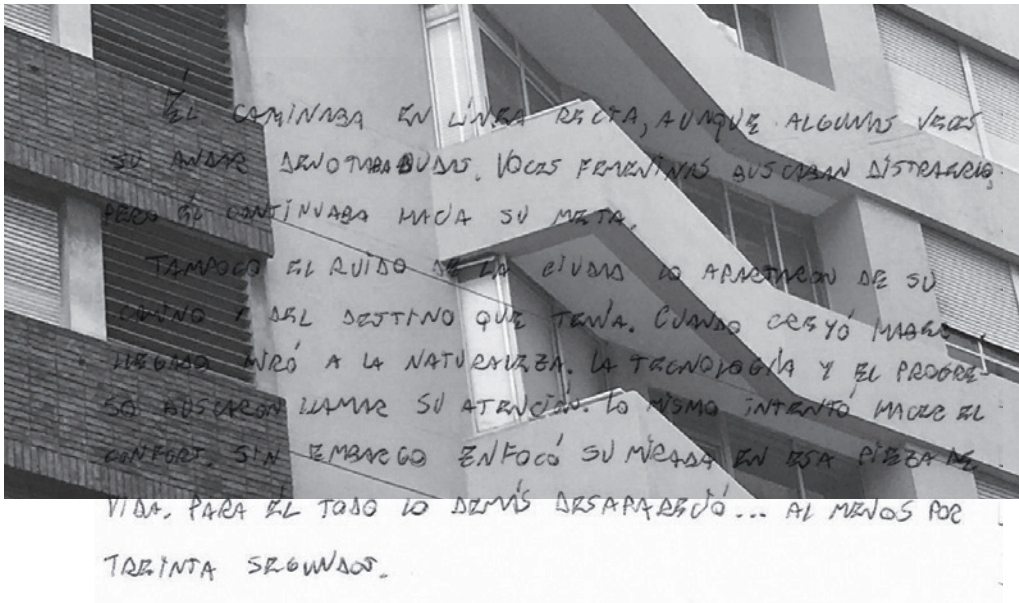 ÉL CAMINABA EN LÍNEA RECTA, AUNQUE ALGUNAS VECES
SU ANDAR DENOTABA DUDAS. VOCES FEMENINAS BUSCABAN DISTRAERLO,
PERO ÉL CONTINUABA HACIA SU META.
TAMPOCO EL RUIDO DE LA CIUDAD LO APARTARON DE SU
CAMINO Y DEL DESTINO QUE TENÍA. CUANDO CREYÓ HABER
LLEGADO MIRÓ A LA NATURALEZA. LA TECNOLOGÍA Y EL PROGRE-
SO BUSCARON LLAMAR SU ATENCIÓN. LO MISMO INTENTÓ HACER EL
CONFORT. SIN EMBARGO ENFOCÓ SU MIRADA EN ESA PIEZA DE
VIDA. PARA EL TODO LO DEMÁS DESAPARECIÓ... AL MENOS POR
TREINTA SEGUNDOS.